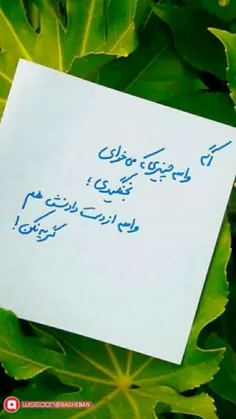 اگه
واسه چیزی که می‌خوای
نجنگیدی؛
واسه از دست دادنش هم
گریه نکن!